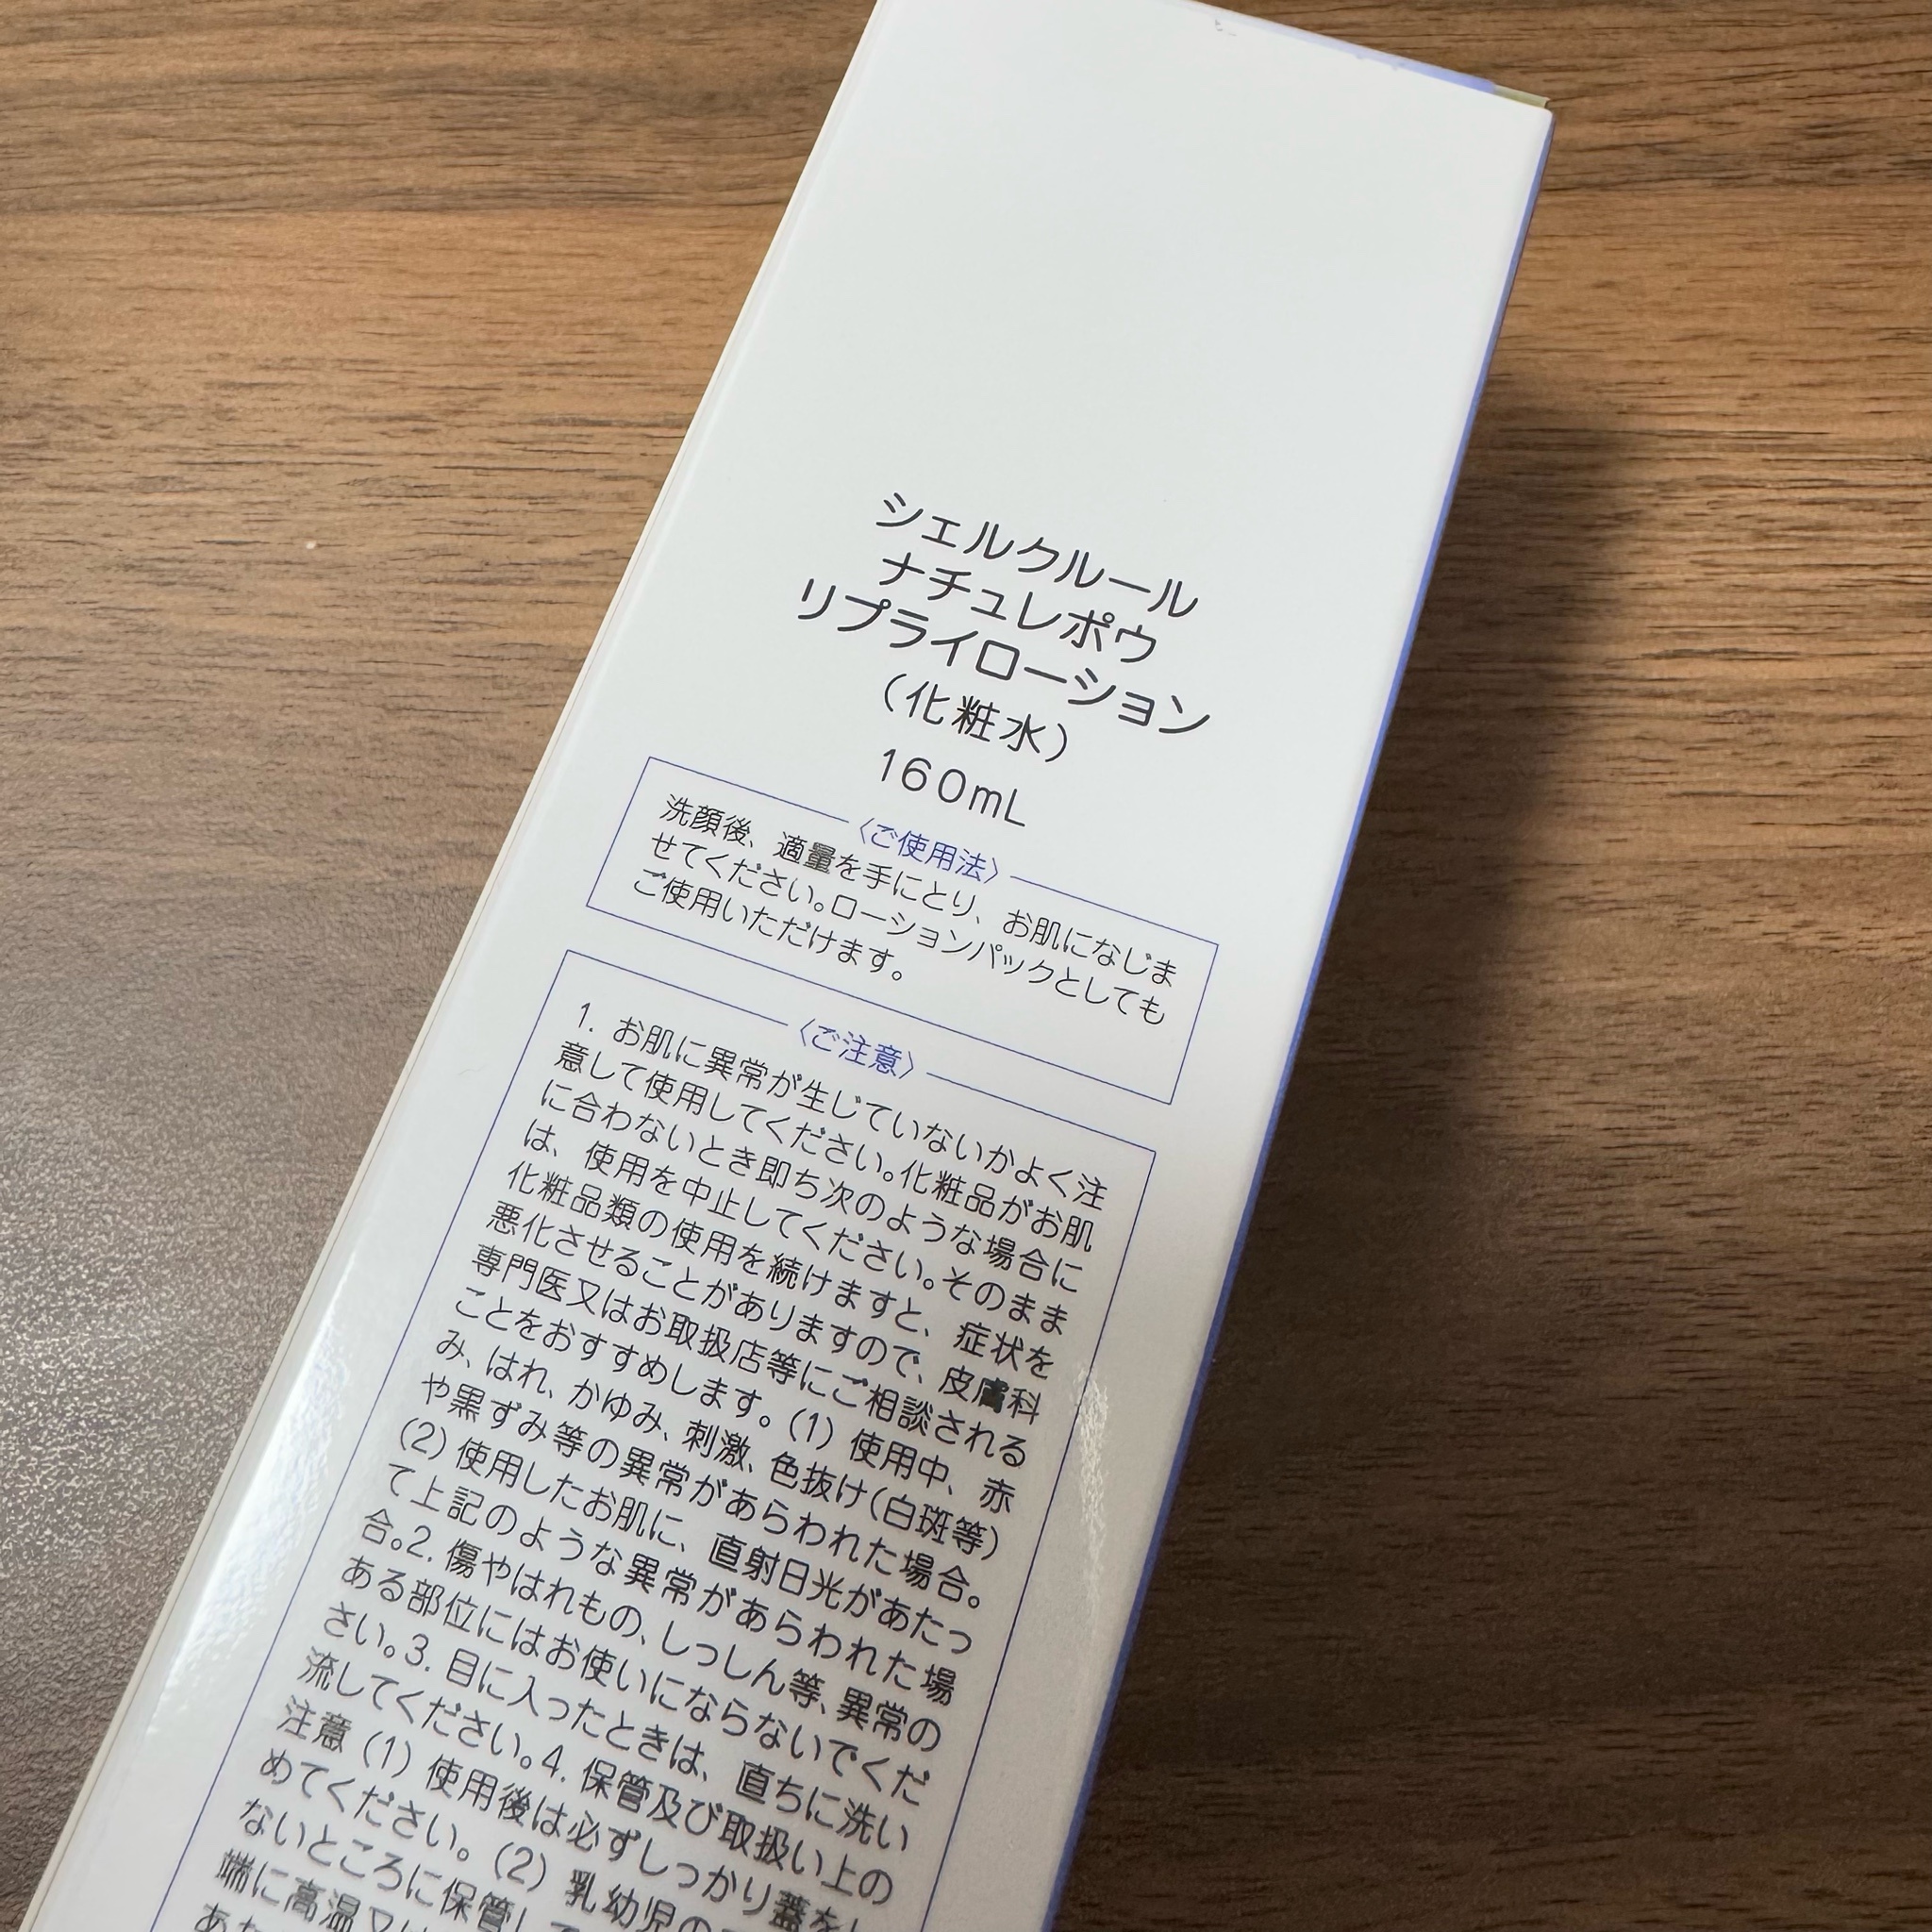 シェルクルール
ナチュレポウ
リプライローション
(化粧水)
160mL
〈ご使用法〉
洗顔後、適量を手にとり、お肌になじま
せてください。ローションパックとしても
ご使用いただけます。
〈ご注意〉
1. お肌に異常が生じていないかよく注
意して使用してください。化粧品がお肌
に合わないとき即ち次のような場合に
は、使用を中止してください。そのまま
化粧品類の使用を続けますと、症状を
悪化させることがありますので、皮膚科
専門医又はお取扱店等にご相談される
ことをおすすめします。(1) 使用中、赤
み、はれ、かゆみ、刺激、色抜け(白斑等)
や黒ずみ等の異常があらわれた場合。
(2) 使用したお肌に、直射日光があたっ
て上記のような異常があらわれた場
合。2. 傷やはれもの、しっしん等、異常の
ある部位にはお使いにならないでくだ
さい。3. 目に入ったときは、直ちに洗い
流してください。4. 保管及び取扱い上の
注意 (1) 使用後は必ずしっかり蓋を
めてください。(2) 乳幼児の
ないところに保管して
端に高温又は